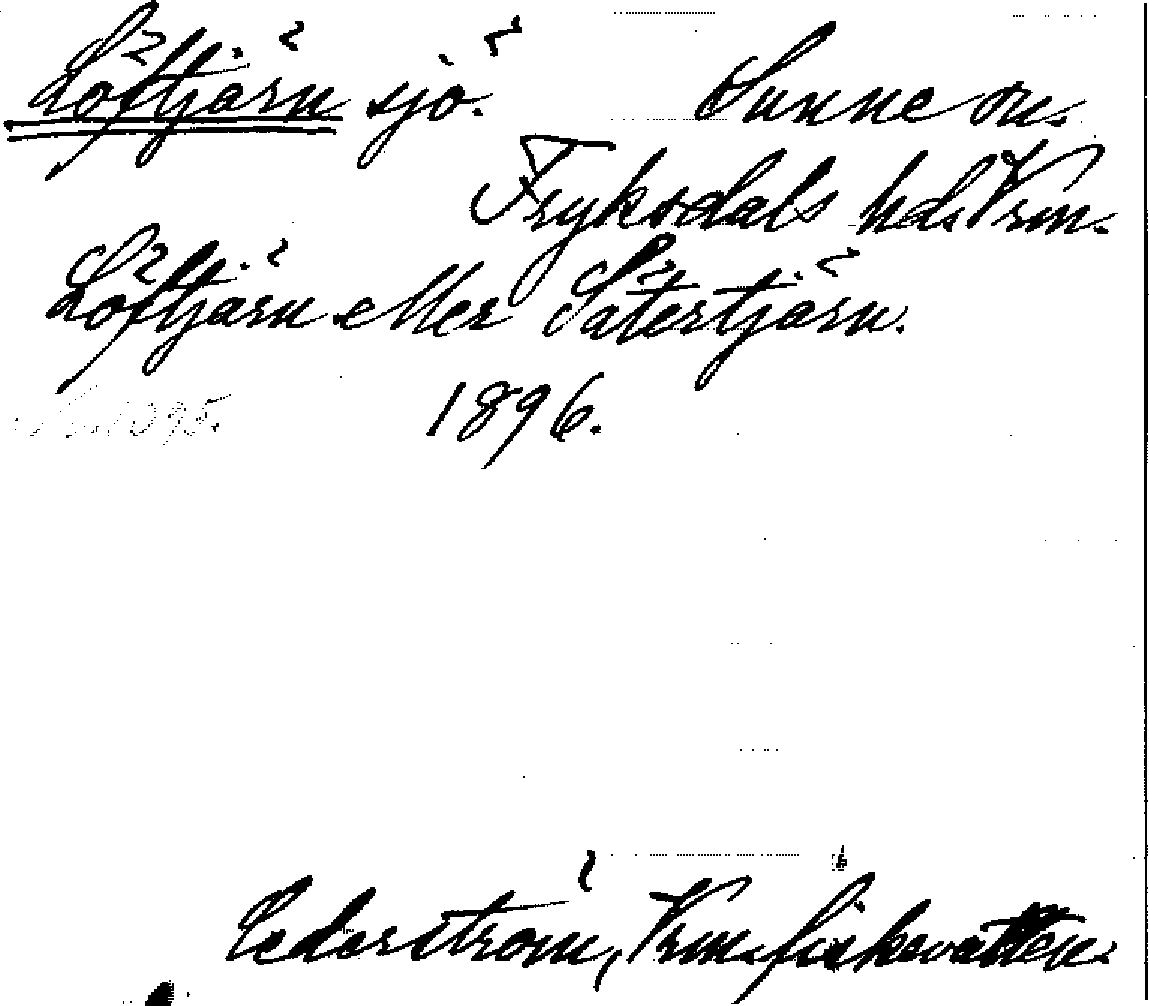 Löftjärn sjö. Sunne sn.
Fryksdals hd. Vrm.
Löftjärn eller Sätertjärn.
1896.
Cederström, Vrms fiskevatten.